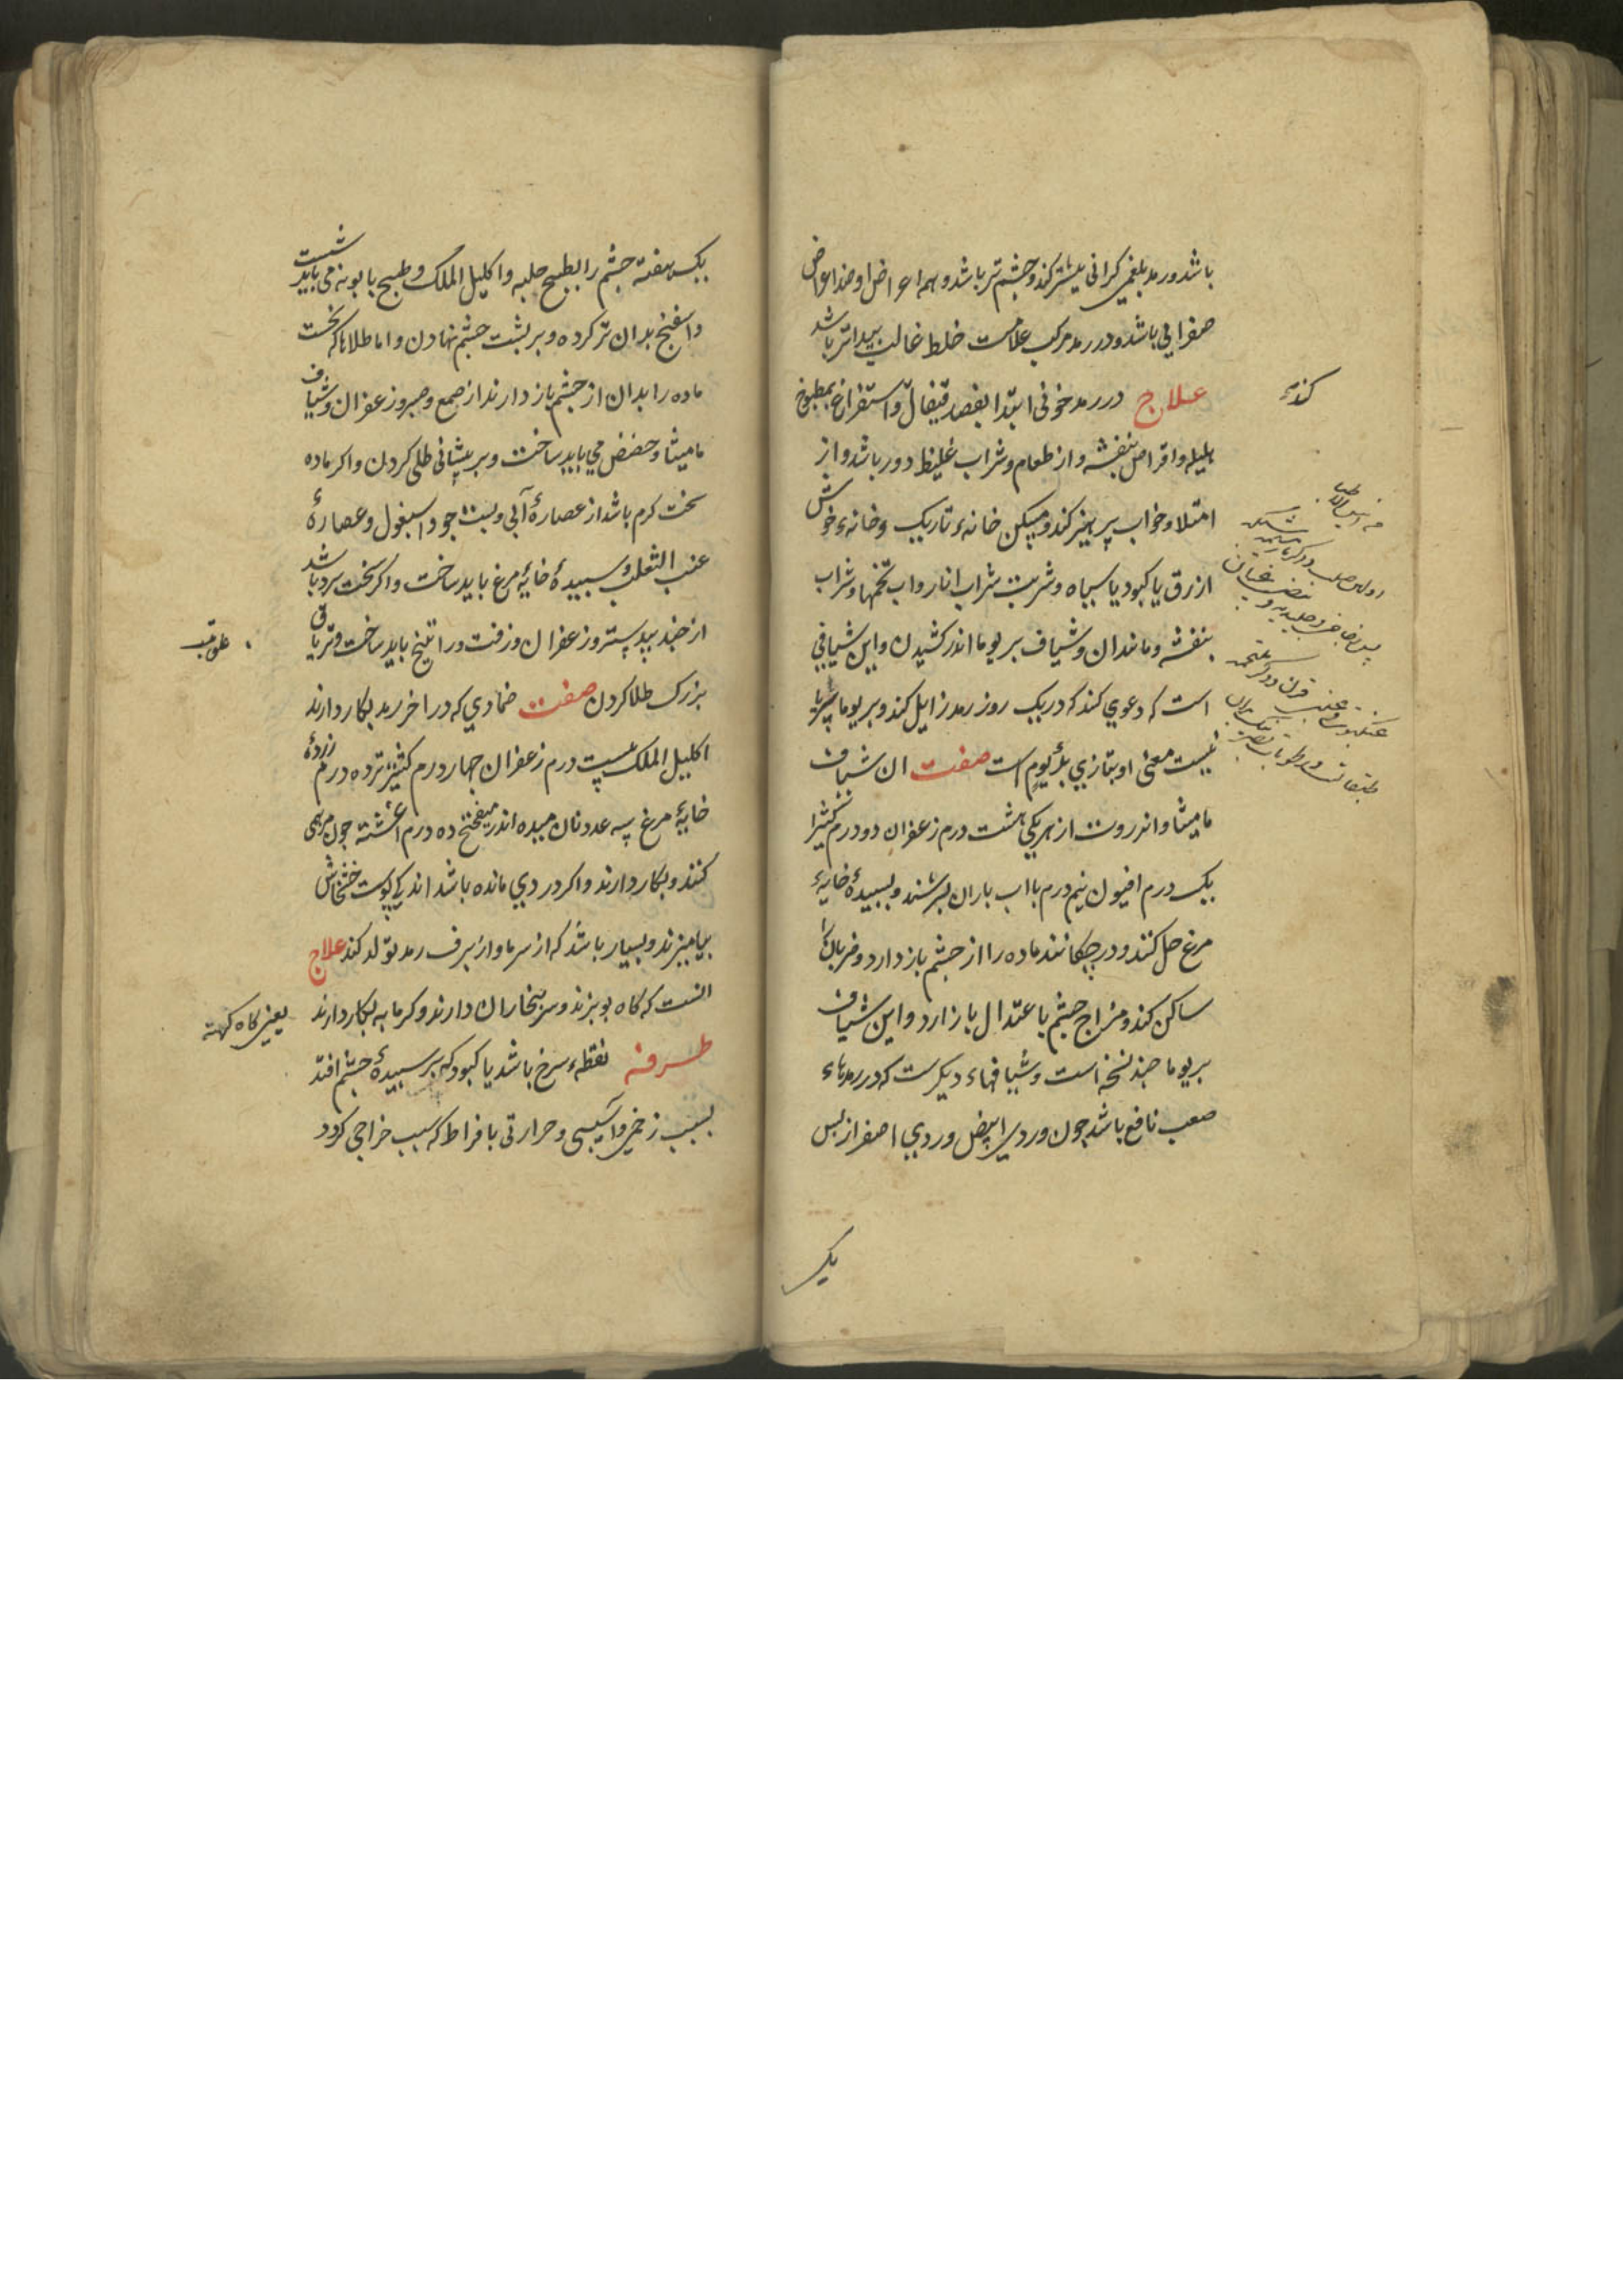 باشد ورمد بلغمی کرانی بیشتر کند وچشم تر باشد وهمه اعراض او ضد اعراض
صفرایی باشد ودر رمد مرکب علامت خلط غالب پیداتر باشد
علاج در رمد خونی ابتدا بفصد قیفال واستفراغ بمطبوخ
هلیله واقراص بنفشه واز طعام وشراب غلیظ دور باشد واز
امتلا وخواب پرهیز کند ومسکن خانهء تاریک وخانهء خوش
ازرق یا کبود یا سیاه وشربت شراب انار واب تخمها وشراب
بنفشه ومانند ان وشیاف بریوما اندر کشیدن واین شیافی
است که دعوی کند که در یک روز رمد زایل کند وبریوما سریانی
نیست معنی او بتازی برء یوم است صفت ان شیاف
مامیثا وانزروت از هریکی هشت درم زعفران دو درم کثیرا
یک درم افیون نیم درم بااب باران بسرشند وبسپیدهٔ خایهٔ
مرغ حل کنند ودر چکانند ماده را از چشم باز دارد وضربان را
ساکن کند ومزاج چشم با عتدال باز ارد واین شیاف
بریوما چند نسخه است وشیافهاء دیکرست که در رمدهاء
صعب نافع باشد چون وردی ابیض وردی اصفر از پس
یک
یک هفته چشم را بطبیخ حلبه واکلیل الملک وطبیخ بابونه می باید شست
واسفنج بدان تر کرده وبر پشت چشم نهادن واما طلاها که نخست
ماده را بدان از چشم باز دارند از صمغ وصبر وزعفران وشیاف
مامیثا وحضض می باید ساخت وبر پیشانی طلی کردن واکر ماده
سخت کرم باشد از عصارهٔ آبی وپست جو واسبغول وعصارهٔ
عنب الثعلب وسپیدهٔ خایهٔ مرغ باید ساخت واکر سخت سرد باشد
از جند بیدستر وزعفران وزفت وراتینج باید ساخت وتریاق
بزرک طلا کردن صفت ضمادی که در اخر رمد بکار دارند
اکلیل الملک بیست درم زعفران چهار درم کشنیز تر ده درم زردهٔ
خایهٔ مرغ سه عدد نان میده اندر میفختج ده درم اغشته چون مرهمی
کنند وبکار دارند واکر دردی مانده باشد اندکی پوست خشخاش
بیامیزند وبسیار باشد که از سرما واز برف رمد تولد کند علاج
انست که کاه بو یزند وسر ببخار ان دارند وکرمابه بکار دارند
یعنی کاه کهنه
طرفه نقطهء سرخ باشد یا کبود که بر سپیدهٔ چشم افتد
بسبب زخمی وآسیبی وحرارتی بافراط که سبب خراجی کردد